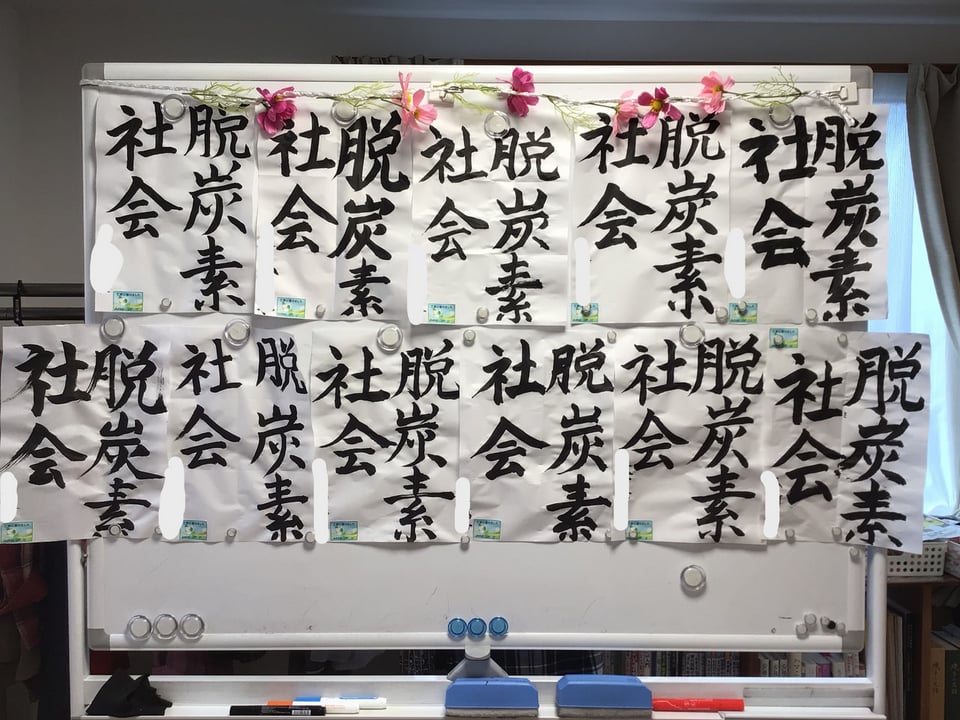 脱炭素
社会
脱炭素
社会
脱炭素
社会
脱炭素
社会
脱炭素
社会
脱炭素
社会
脱炭素
社会
脱炭素
社会
脱炭素
社会
脱炭素
社会
脱炭素
社会